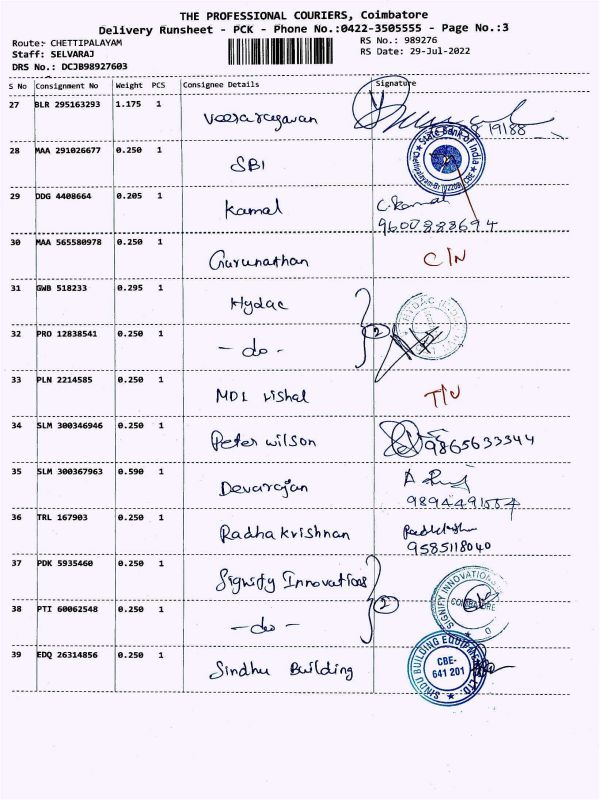 THE PROFESSIONAL COURIERS, Coimbatore
Delivery Runsheet - PCK - Phone No.:0422-3505555 - Page No.:3
Route: CHETTIPALAYAM RS No.: 989276
Staff: SELVARAJ RS Date: 29-Jul-2022
DRS No.: DCJB98927603
S No Consignment No Weight PCS Consignee Details Signature
27 BLR 295163293 1.175 1 Veeraragavan 19188
28 MAA 291026677 0.250 1 SBI State Bank of India
29 DDG 4408664 0.205 1 Kamal C. Kamal
9600888694
30 MAA 565580978 0.250 1 Gurunathan C/N
31 GWB 518233 0.295 1 Hydac HYDAC
32 PRO 12838541 0.250 1 - do - 2
33 PLN 2214585 0.250 1 MDI Vishal T/U
34 SLM 300346946 0.250 1 Peter Wilson 9865633344
35 SLM 300367963 0.590 1 Devarajan
36 TRL 167903 0.250 1 Radhakrishnan
9585118040
37 PDK 5935460 0.250 1 Signify Innovations SIGNIFY INNOVATIONS
COIMBATORE
38 PTI 60062548 0.250 1 - do - 2
39 EDQ 26314856 0.250 1 Sindhu Building SINDU BUILDING EQUIPMENT
CBE-
641 201